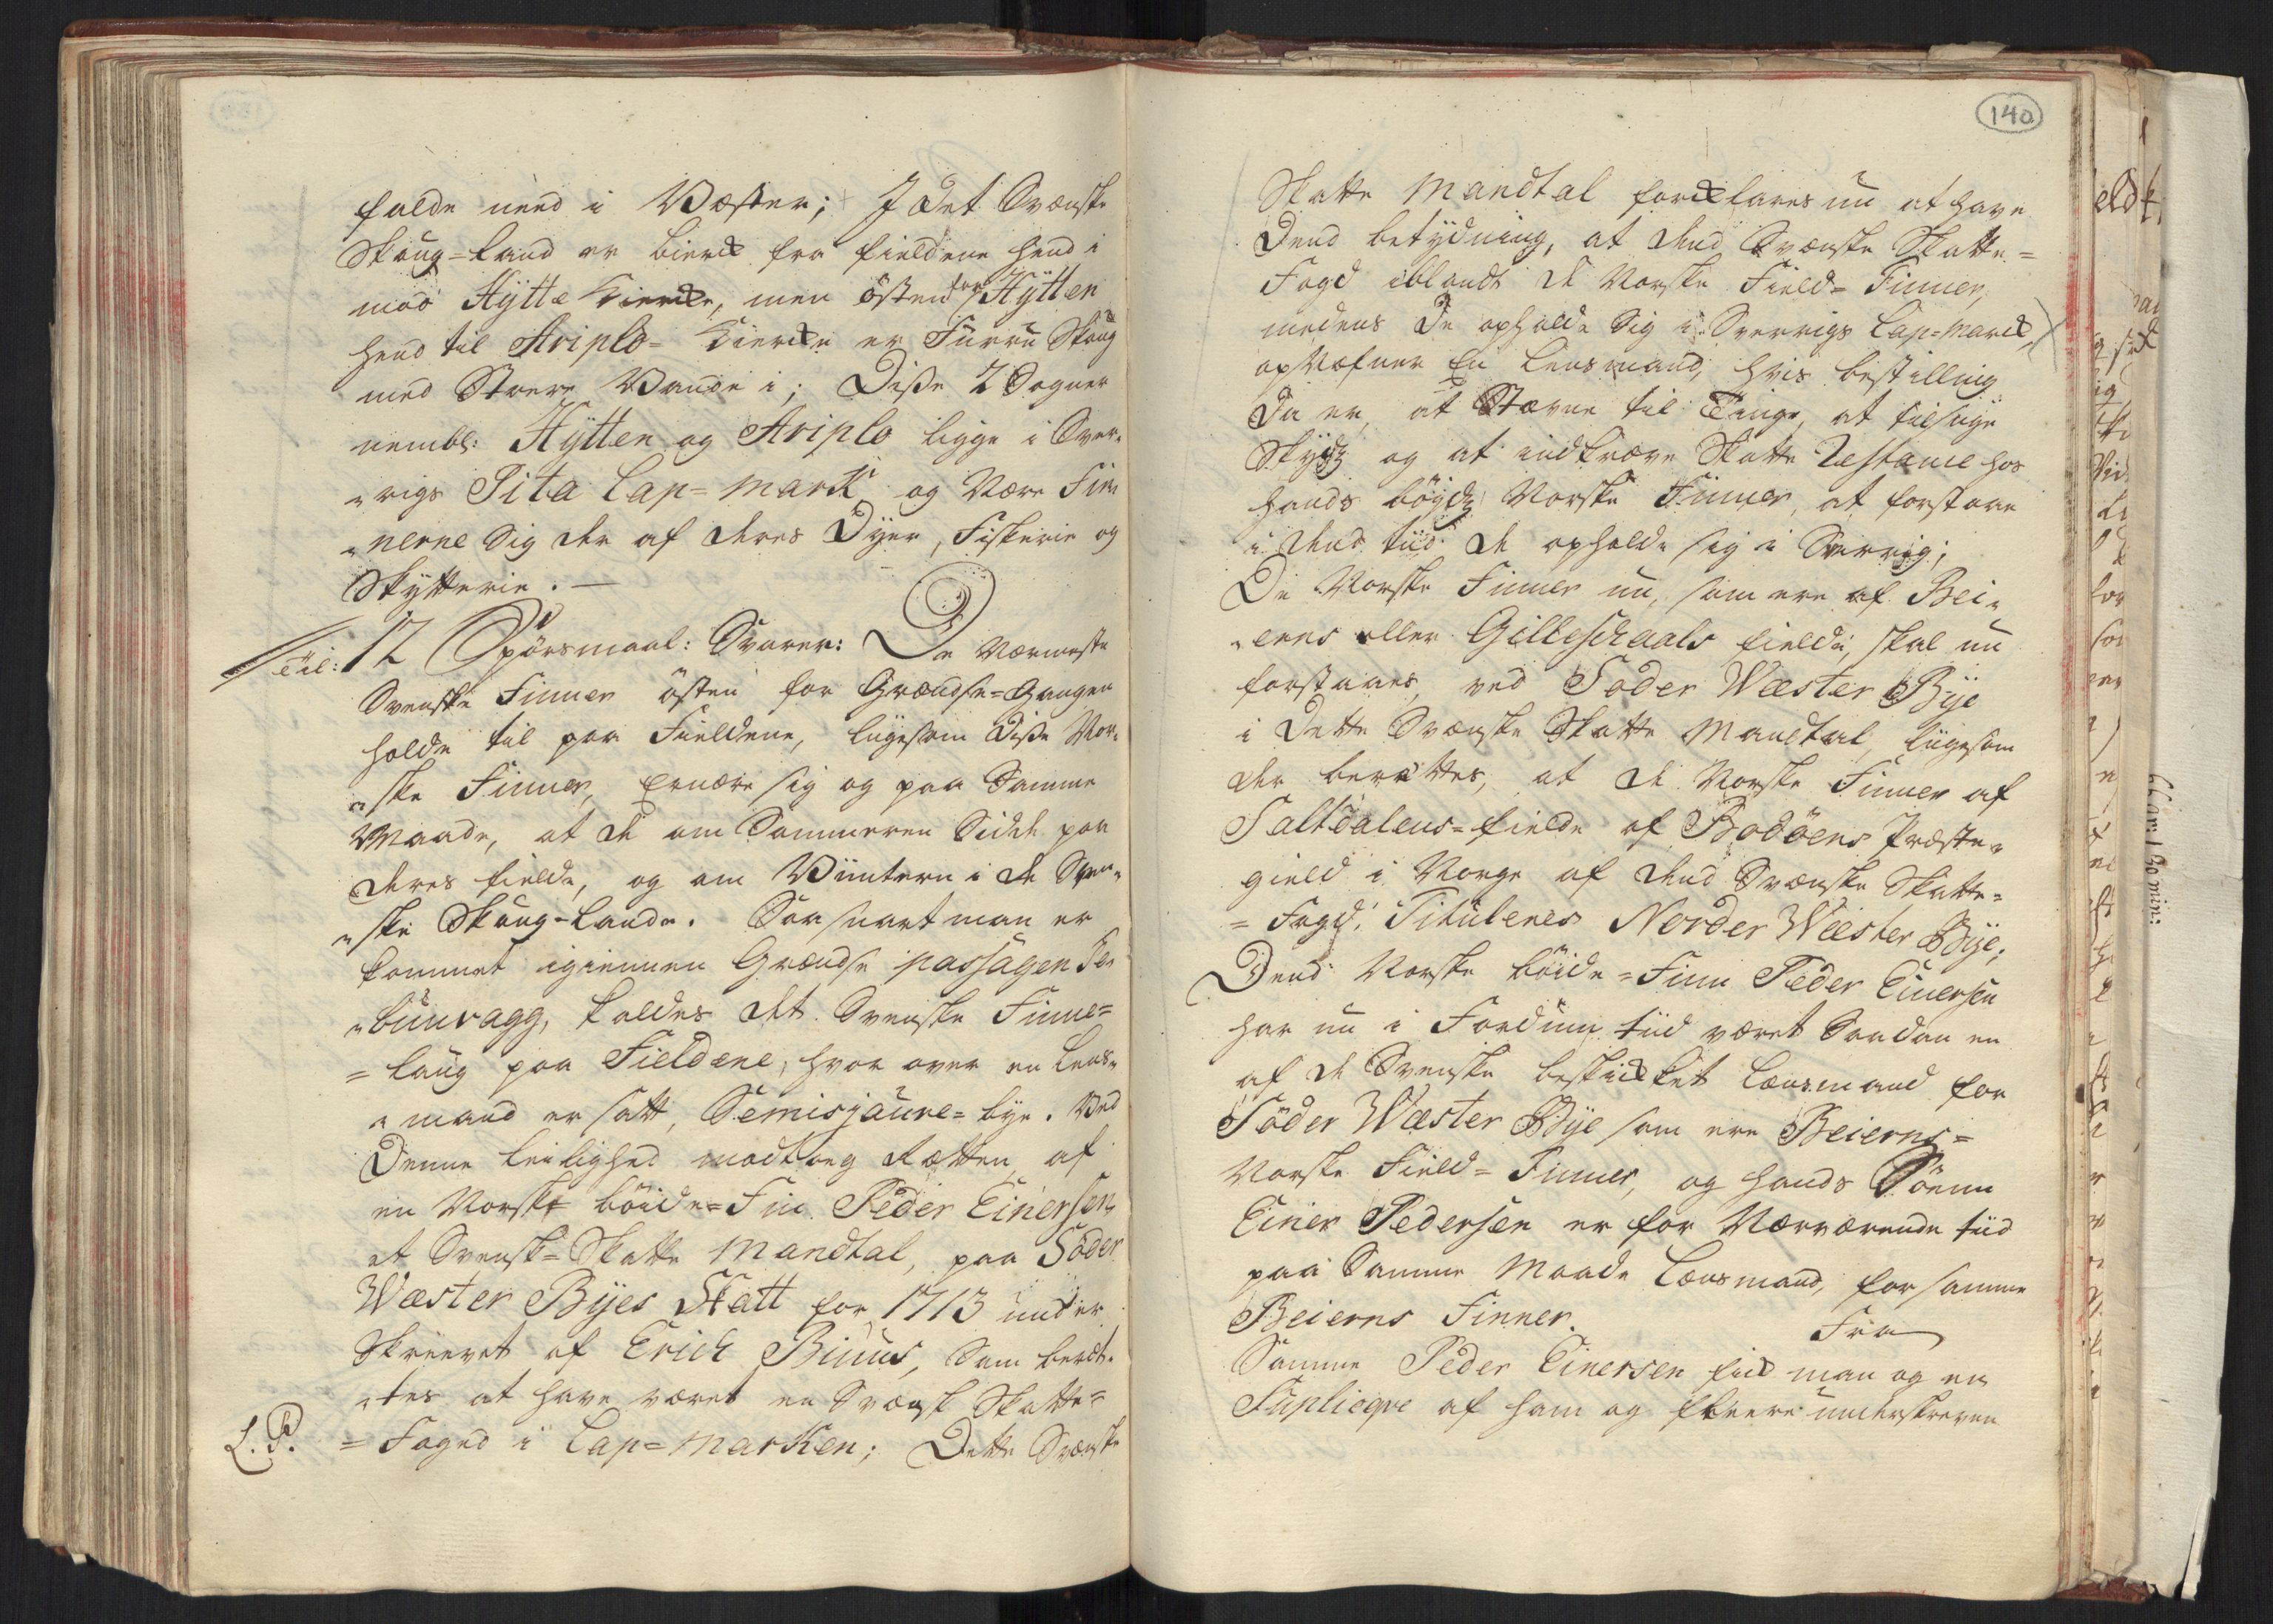 falde need i Væster; I det Svenske
Skoug-land er bierck fra fieldene hend i
mod Hytte Kiercke, men östen for Hÿtten
hend til Ariplo-Kiercke er Furru Skoug
med Store Vande i; Disse 2 Sogner
nembl: Hÿtten og Ariplo ligge i Sver„
„rigs Pita Lap=mark og Nære Fin„
„nerne Sig der af deres Dÿer, Fiskerie og
Skÿtterie.
Til: 12 Spörsmaal: Svarer: De Nærmeste
Svenske Finner östen for Grændse=Gangen
holde til paa Fieldene, liigesom disse Nor„
„ske Finner, Ernære sig og paa Samme
Maade, at de om Sommeren Sidde paa
deres fielde, og om Viinteren i de Sven„
„ske Skoug-Lande. Saa snart man er
kommet igiennem Grændse passagen Te„
„bunvagg, kaldes det Svenske Finne=
=laug paa Fieldene, hvor over en Lens„
„mand er satt, Semisjaure=bye. Ved
Denne Leilighed modtoeg Rætten af
en Norsk böide=Fin Peder Einersen,
et Svensk=Skatte Mandtal, paa Söder
Wæster Bÿes Skatt for 1713 under
Skreevet af Erich Biuur, Som beret„
„tes at have været en Svensk Skatte=
L.P. =Foged i Lap=marken; Dette Svenske
140
Skatte Mandtal forklares nu at have
Dend betÿdning, at dend Svenske Skatte=
Fogd iblandt de Norske Field=Finner,
medens De opholde Sig i Sverrigs Lap=marck,
opNefner En Lensmand, hvis bestilling
Da er, at Stevne til Tinge, at tilsige
Skÿdtz og at indkræve Skatte Restance hos
hands böÿdz Norske Finner, at forstaae
i dend tiid de opholde sig i Sverrig;
De Norske Finner nu, som ere af Bei„
„erns eller Gilleschaals fielde, skal nu
forstaaes, ved Söder Wæster Bÿe
i Dette Svenske Skatte Mandtal, liigesom
der berettes, at de Norske Finner af
Saltdalens=fielde af Bodöens Præste„
gield i Norge af dend Svenske Skatte=
=Fogd. Tituleres Norder Wæster Bÿe;
Dend Norske böide=Finn Peder Einersen
har nu i Fordum tiid været Saadan en
af de Svenske beskicket Lensmand for
Söder Wæster Bÿe som ere Beierns=
Norske Field=Finner, og hands Sönn
Einer Pedersen er for Nærværende tiid
paa Samme Maade Lensmand, for samme
Beierns Finner. Fra
Samme Peder Einersen fick man og en
Supliqve af ham og fleere underskreven